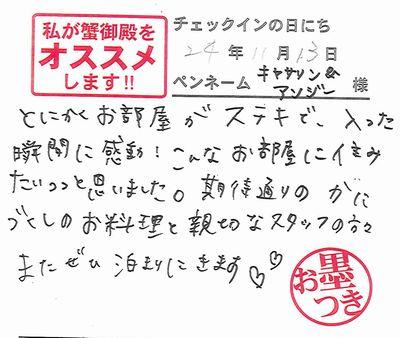 私が蟹御殿を
オススメ
します!!
チェックインの日にち
24年11月13日
ペンネーム キャサリン&アンジー 様
とにかくお部屋がステキで、入った
瞬間に感動!こんなお部屋に住み
たいっっと思いました。期待通りのがに
づくしのお料理と親切なスタッフの方々
またぜひ泊まりにきます♡♡
お墨つき